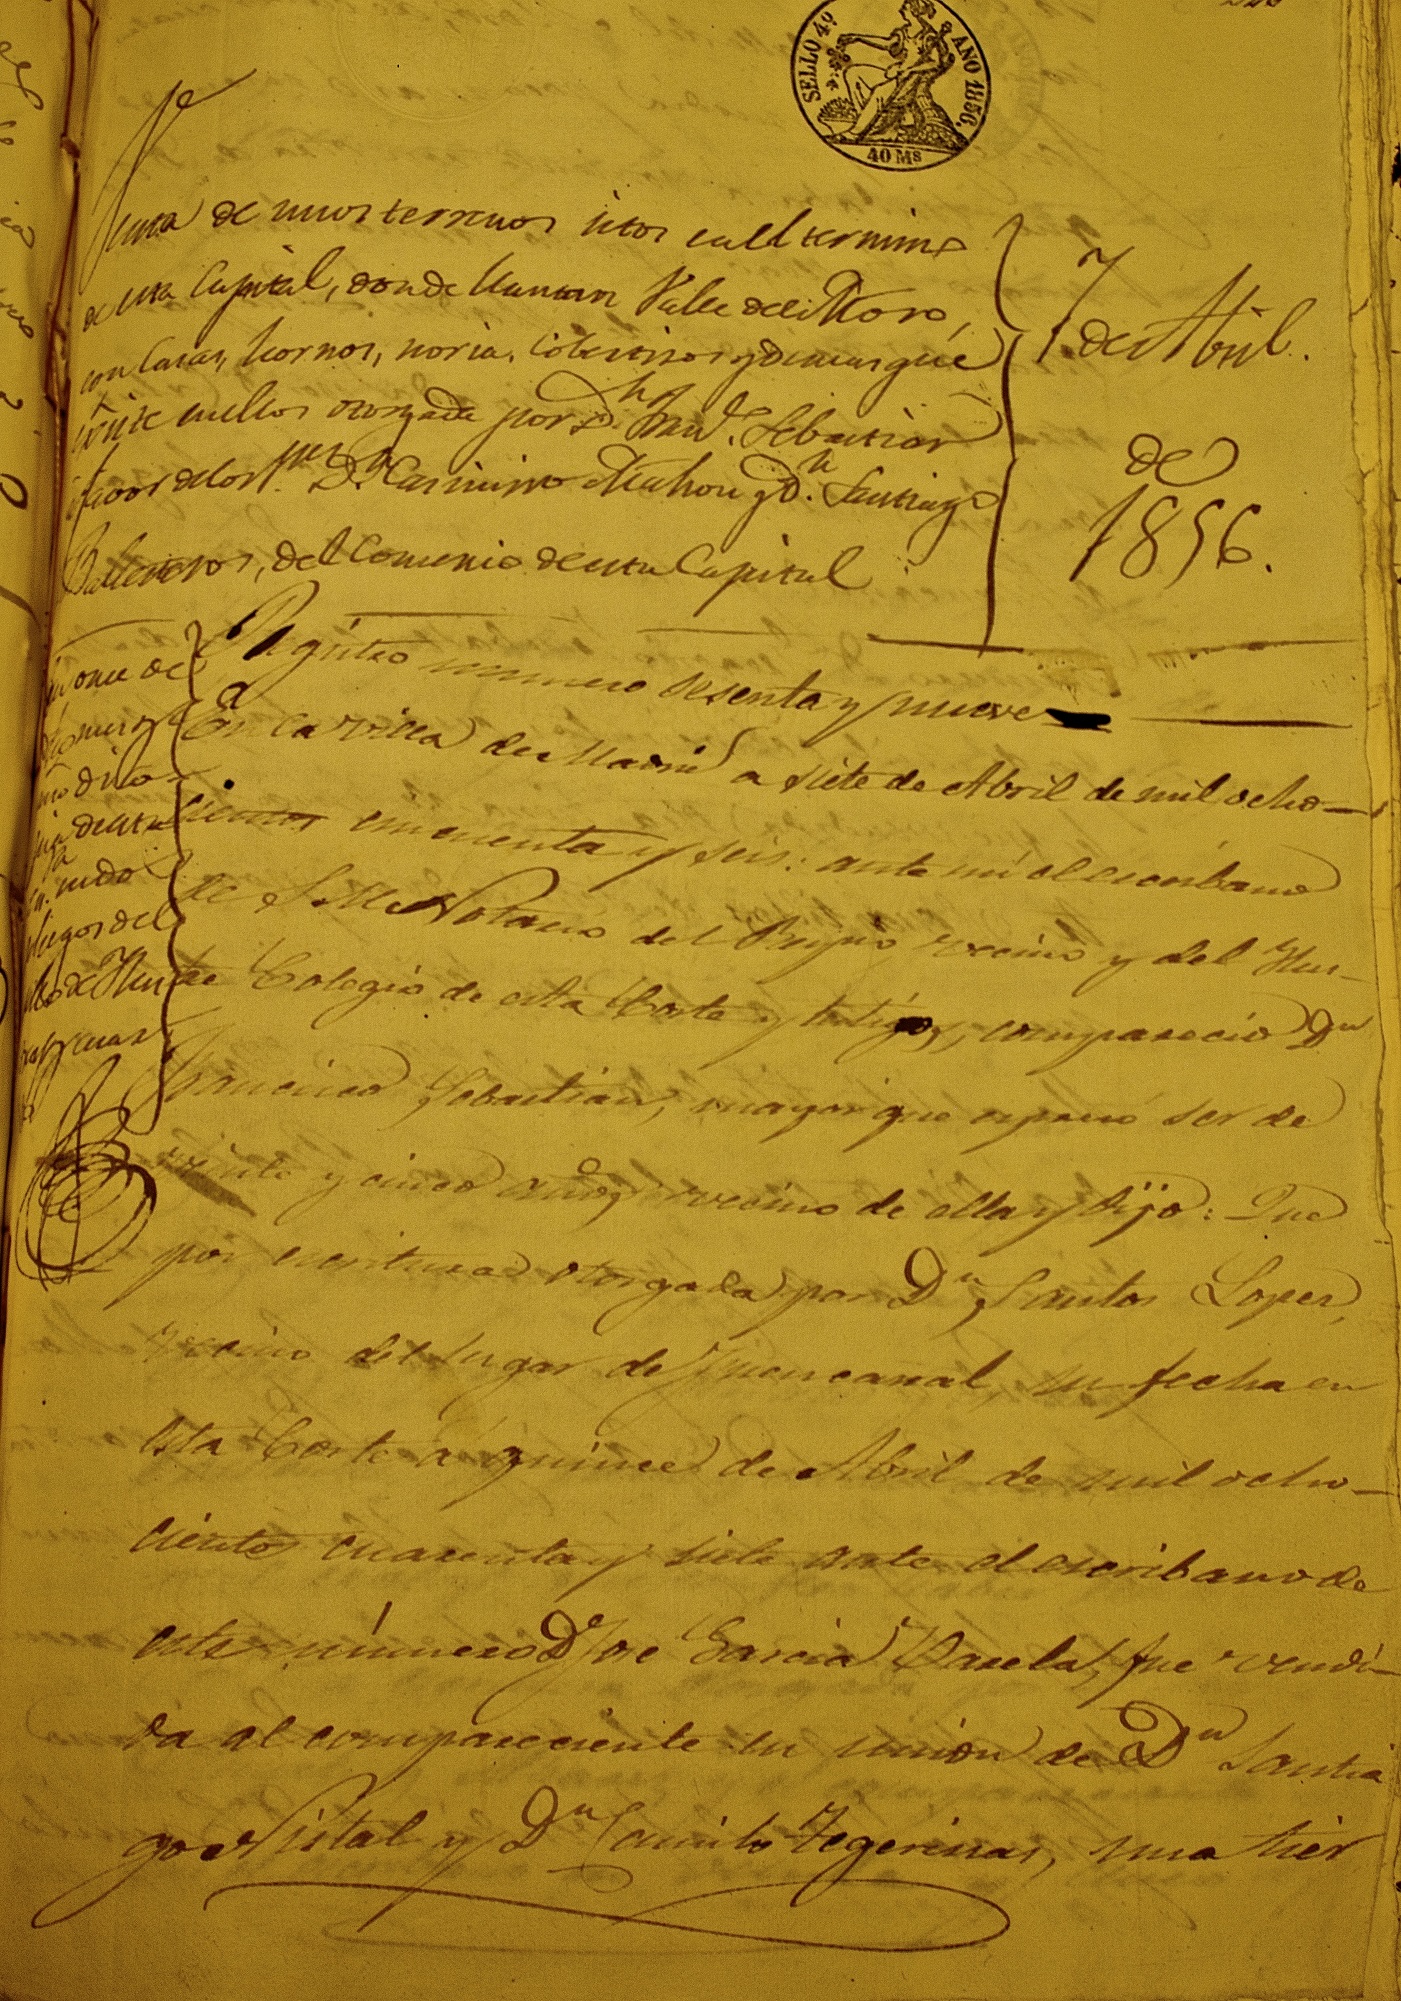 SELLO 4º AÑO 1856.
40 Ms
Venta de unos terrenos sitos en el termino
de esta Capital, donde llaman Valle del Moro,
con Casas, hornos, noria, cobertizos y demas que
existe en ellos otorgada por D. Franco. Sebastian
á favor de los Sres. Dn. Casimiro Mahou y Dn. Santiago
Ballesteros, del Comercio de esta Capital
7
de Abril.
de
1856.
Registro numero sesenta y nueve
En la villa de Madrid a siete de Abril de mil ocho-
cientos cincuenta y seis: ante mí el escribano
de S. M. Notario del Reyno, vecino y del Ilus-
tre Colegio de esta Corte y testigos, compareció Dn
Francisco Sebastian, mayor que espresó ser de
veinte y cinco años, vecino de ella y dijo: Que
por escritura otorgada por Dn Santos Lopez,
vecino del lugar de Fuencarral, su fecha en
esta Corte á quince de Abril de mil ocho-
cientos cuarenta y siete ante el escribano de
este número D. Jose Garcia Varela, fue vendi-
da al compareciente en union de Dn Santia
go Nistal y Dn Camilo Tegerinas, una tier
once de
dho
de esta
pliegos del
de Ilustre